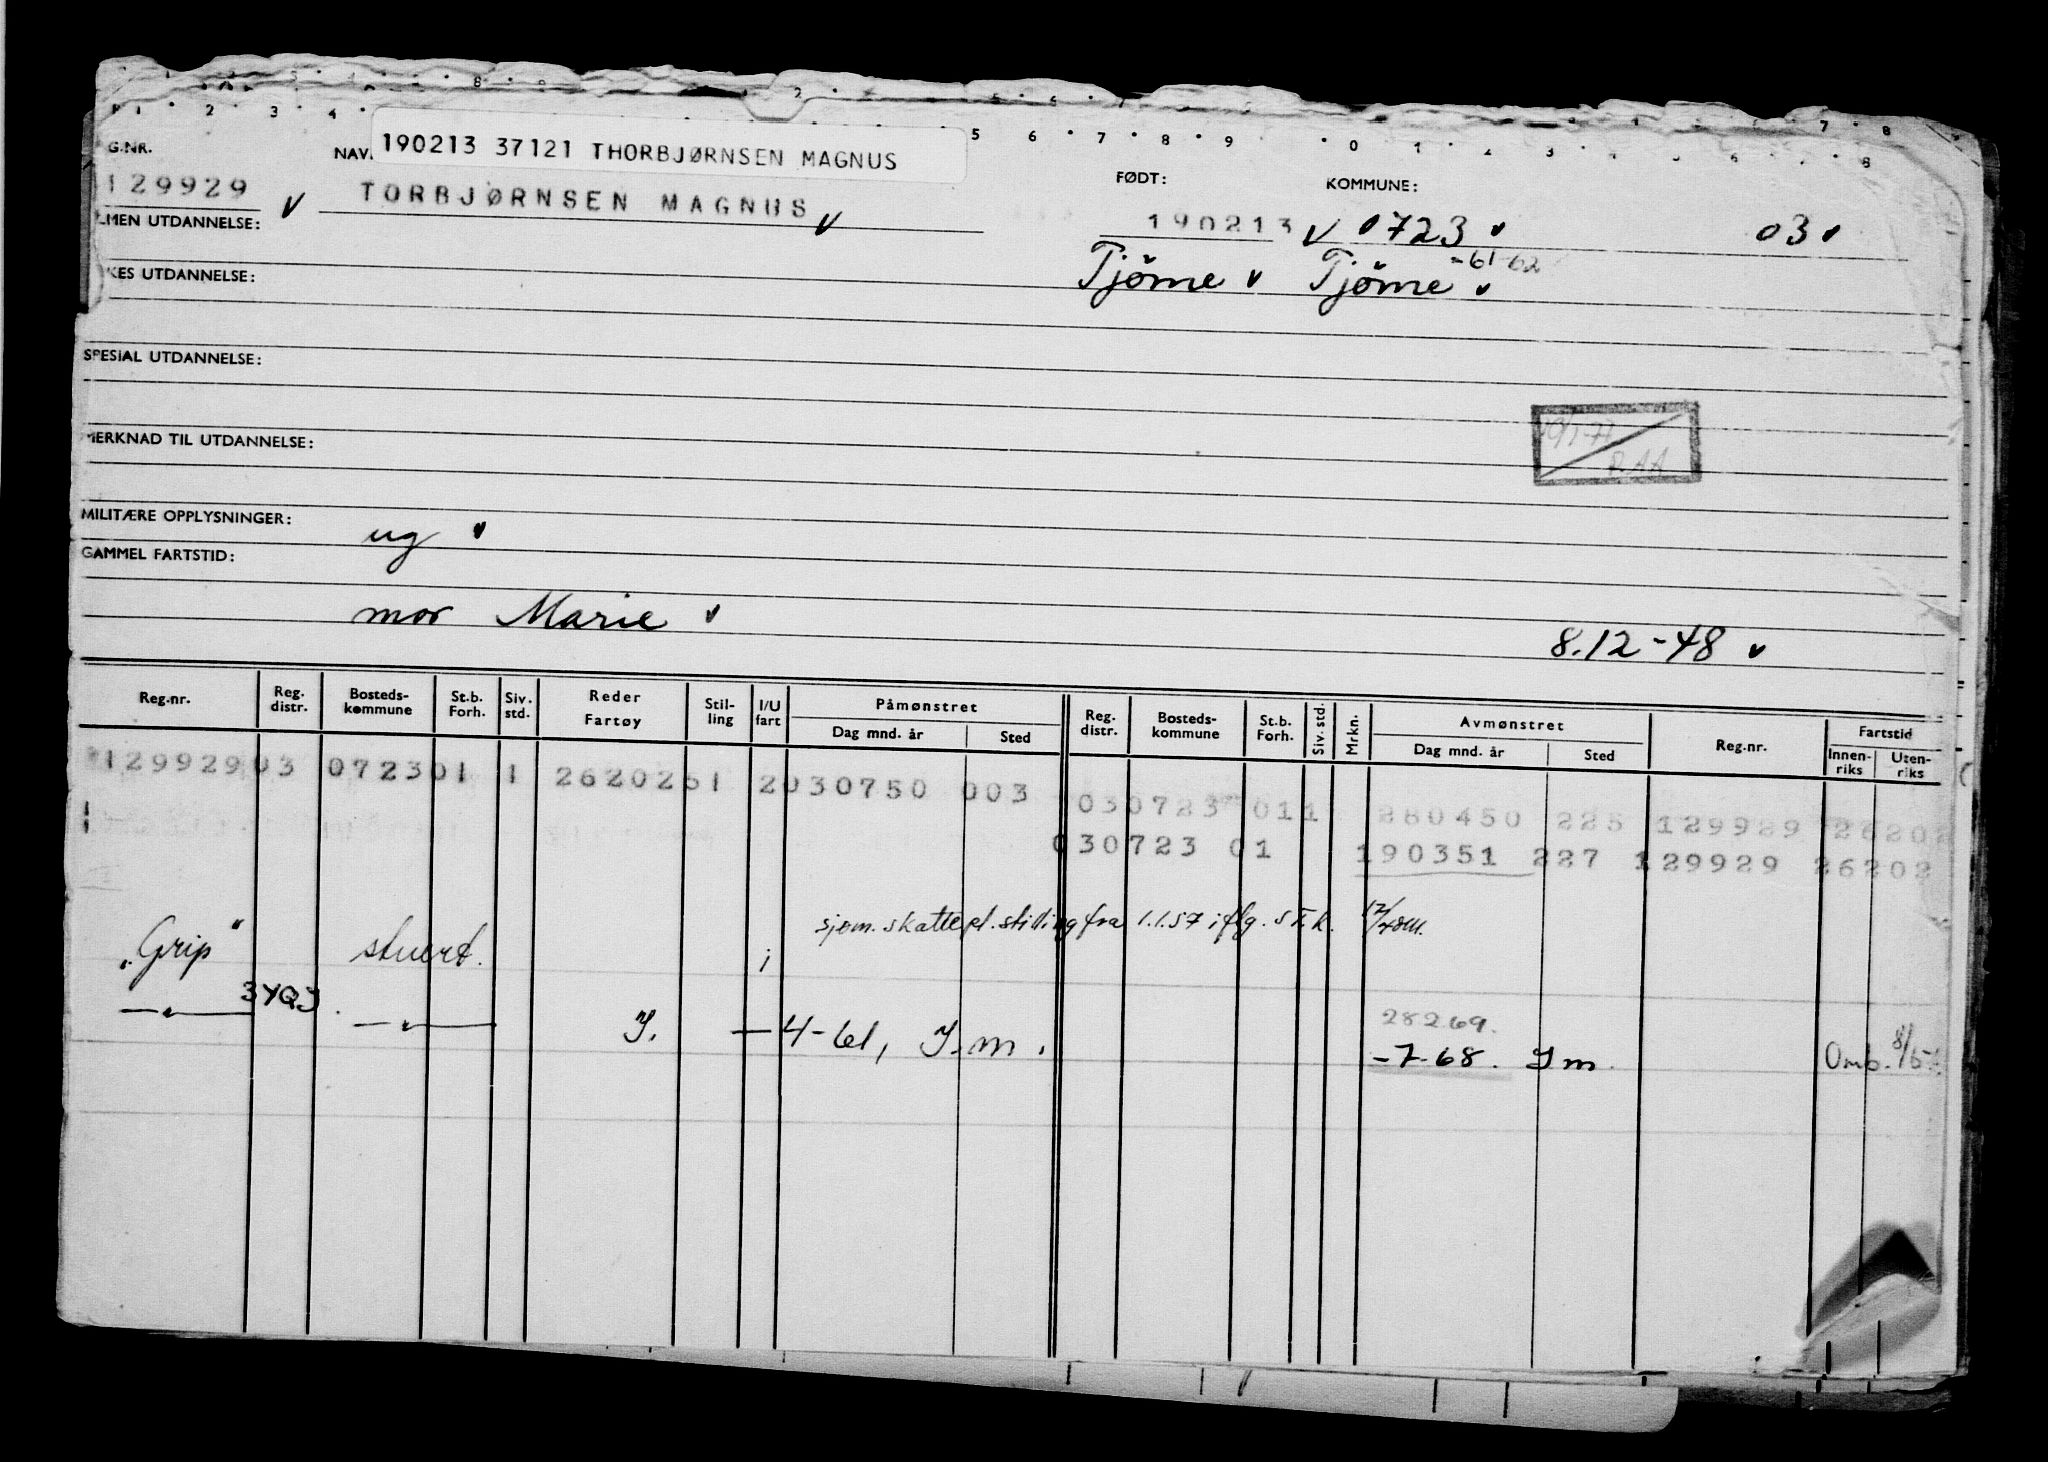 190213 37121 THORBJØRNSEN MAGNUS
G.NR.
NAV
FØDT:
KOMMUNE:
129929
TORBJØRNSEN MAGNUS
190213
0723
03
LMEN UTDANNELSE:
-61-62
KES UTDANNELSE:
Tjöme
Tjöme
SPESIAL UTDANNELSE:
MERKNAD TIL UTDANNELSE:
R.AA
MILITÆRE OPPLYSNINGER:
ug
GAMMEL FARTSTID:
mor Marie
8.12-48
Reg.nr.
Reg. distr.
Bosteds-kommune
St.b. Forh.
Siv. std.
Reder Fartøy
Stil-ling
I/U fart
Påmønstret
Dag mnd. år
Sted
Reg. distr.
Bosteds-kommune
St.b. Forh.
Siv. std.
Mrkn.
Avmønstret
Dag mnd. år
Sted
Reg.nr.
Fartstid
Innen-riks
Uten-riks
129929 03 0723 01 1 2620251 2 030750 003
030723 011 280450 225 129929 26202
030723 01 190351 227 129929 26202
sjøm.skattepl. stilling fra 1.1.57 iflg. S.T.K.
"Grip" stuert. i
—"— 3YQJ —"— J. — 4-61, J.m.
28269.
-7-68. Jm.
Omb.